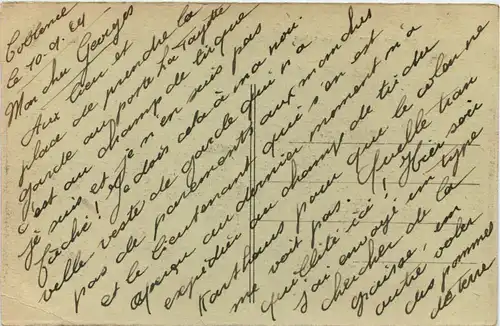 Coblence
le 10.9.24
Mon cher Georges
Au lieu et
place de prendre la
garde au porte La Fayette
c'est au champ de tir que
je suis et je n'en suis pas
fâché ! Je dois cela à ma nou-
velle veste de garde qui n'a
pas de parements aux manches
et le lieutenant qui s'en est
aperçu au dernier moment m'a
expédié au champ de tir du
Karthaus pour que le colon ne
me voit pas. Quelle tran
quillité ici ! Hier soir
j'ai envoyé un type
chercher de la
graisse, un
autre voler
des pommes
de terre